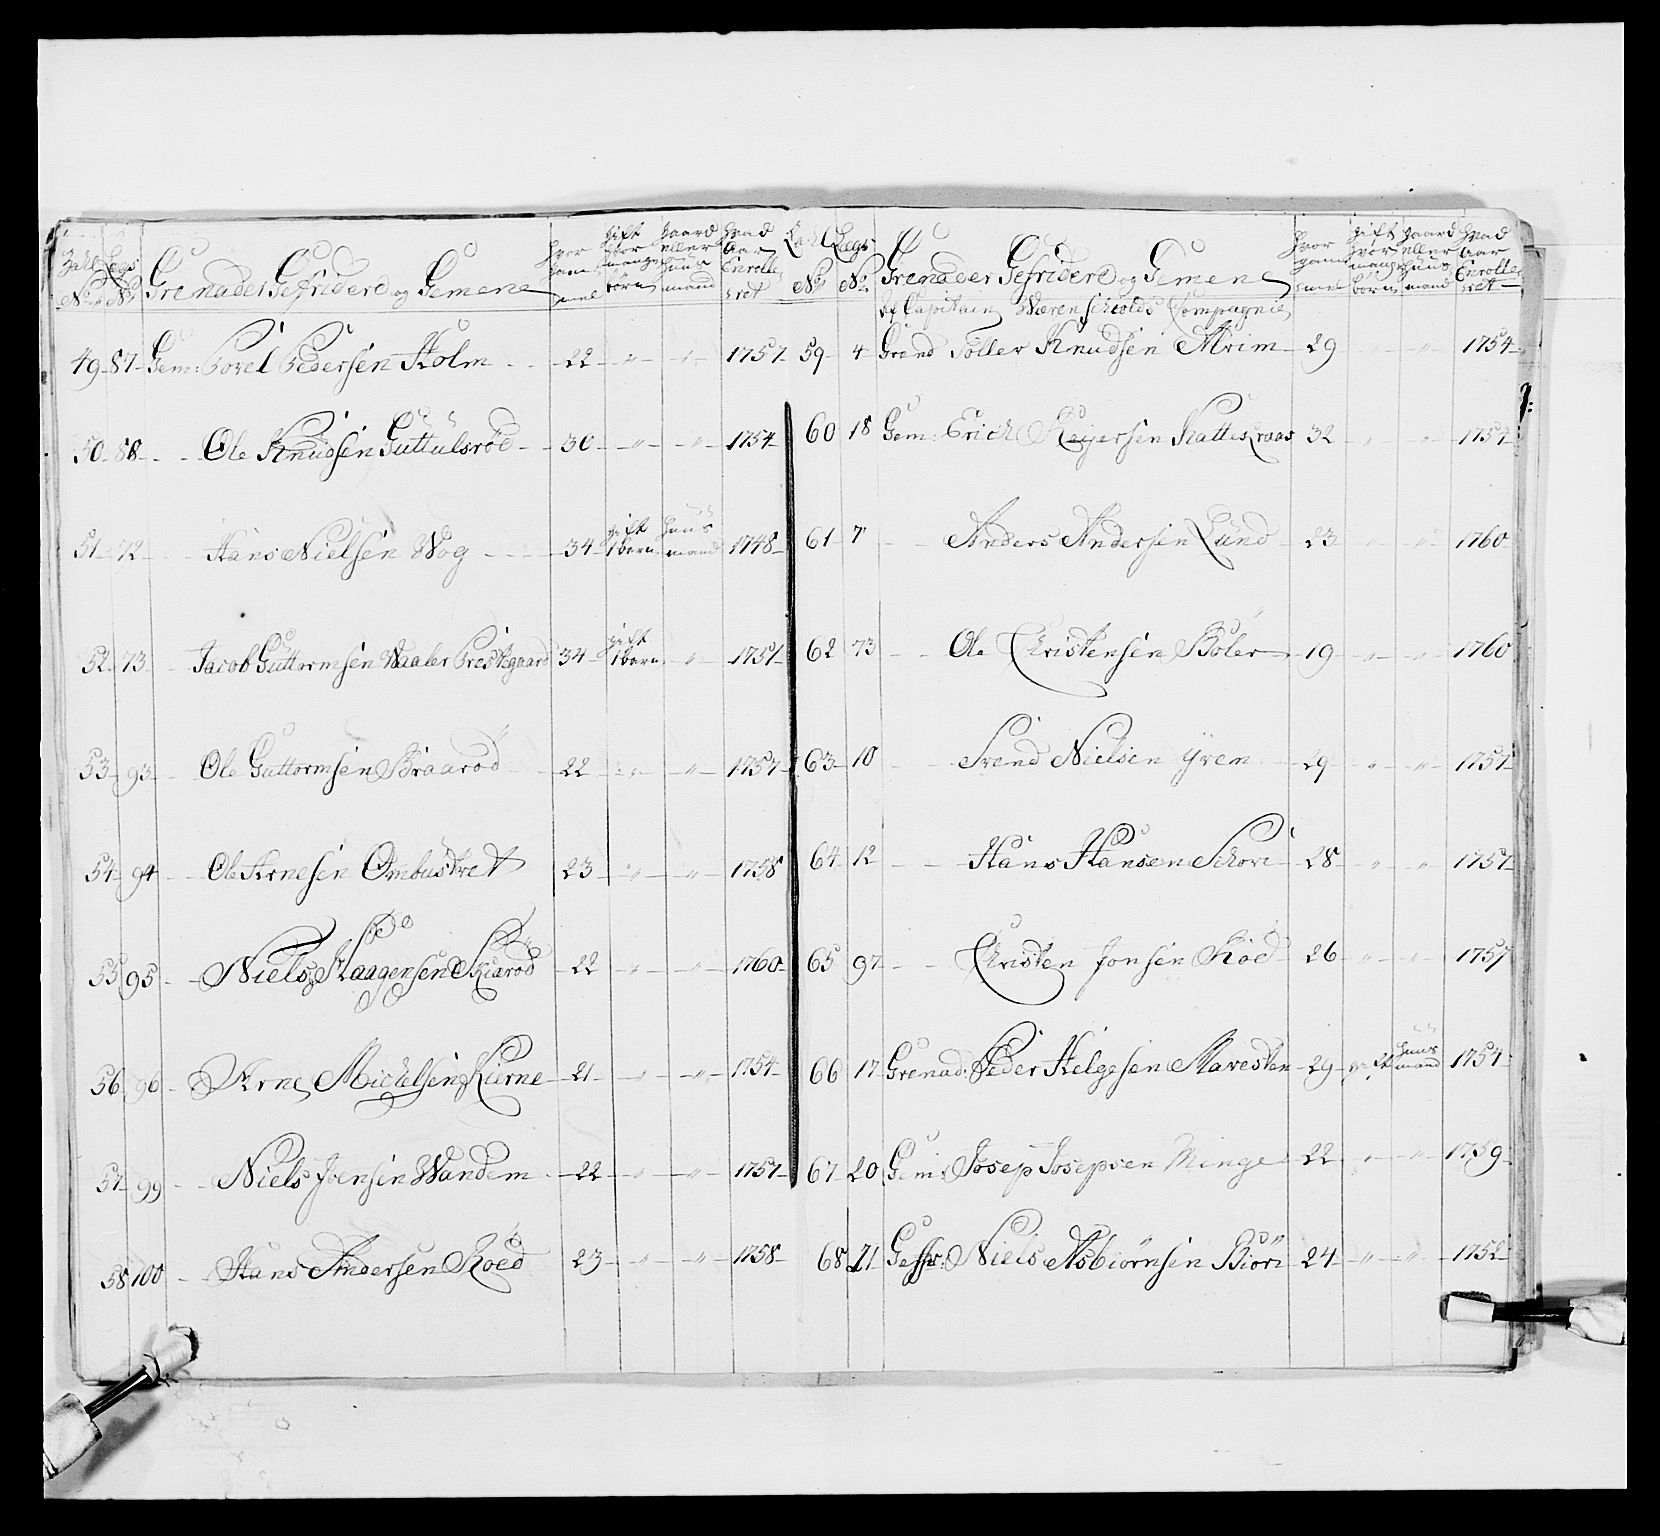 Zahl No: Legs No: Grenader Gefridere og Gemene hvor gammel gift hvor mange börn gaard eller huus mand hvad Aar Enrolleret
49 87 Gem: Povel Pedersen Holm 22 " " 1757
50 88 Ole Knudsen Guttulsröd 30 " " 1754
51 72 Hans Nielsen Wog 34 gift 1 barn huus mand 1748
52 73 Jacob Guttormsen Waaler Prestegaard 34 gift 1 barn " 1757
53 93 Ole Guttormsen Braaröd 22 " " 1757
54 94 Ole Arnesen Ombustvet 23 " " 1758
55 95 Niels Haagensen Kiaröd 22 " " 1760
56 96 Arne Michelsen Kierne 21 " " 1754
57 99 Niels Joensen Wandem 22 " " 1757
58 100 Hans Andersen Roed 23 " " 1758
Zahl No: Legs No: Grenader Gefridere og Gemene hvor gammel gift hvor mange börn gaard eller huus mand hvad Aar Enrolleret
Af Capitain Werenschiolds Compagnie
59 4 Grend Soller Knudsen Alrim 29 " 1754
60 18 Gem: Erich Reyersen Katteraas 32 " " 1754
61 7 Anders Andersen Lund 23 " " 1760
62 73 Ole Christensen Böler 19 " " 1760
63 10 Svend Nielsen yven 29 " " 1757
64 12 Hans Hansen Schovi 28 " " 1757
65 97 Christen Jonsen Röd 26 " " 1757
66 17 Grenad: Peder Helgesen Navesten 29 gift huus mand 1754
67 20 Gem: Josep Josepsen Minge 22 " " 1759
68 21 Gefr: Niels Asbiörnsen Biöri 24 " " 1752